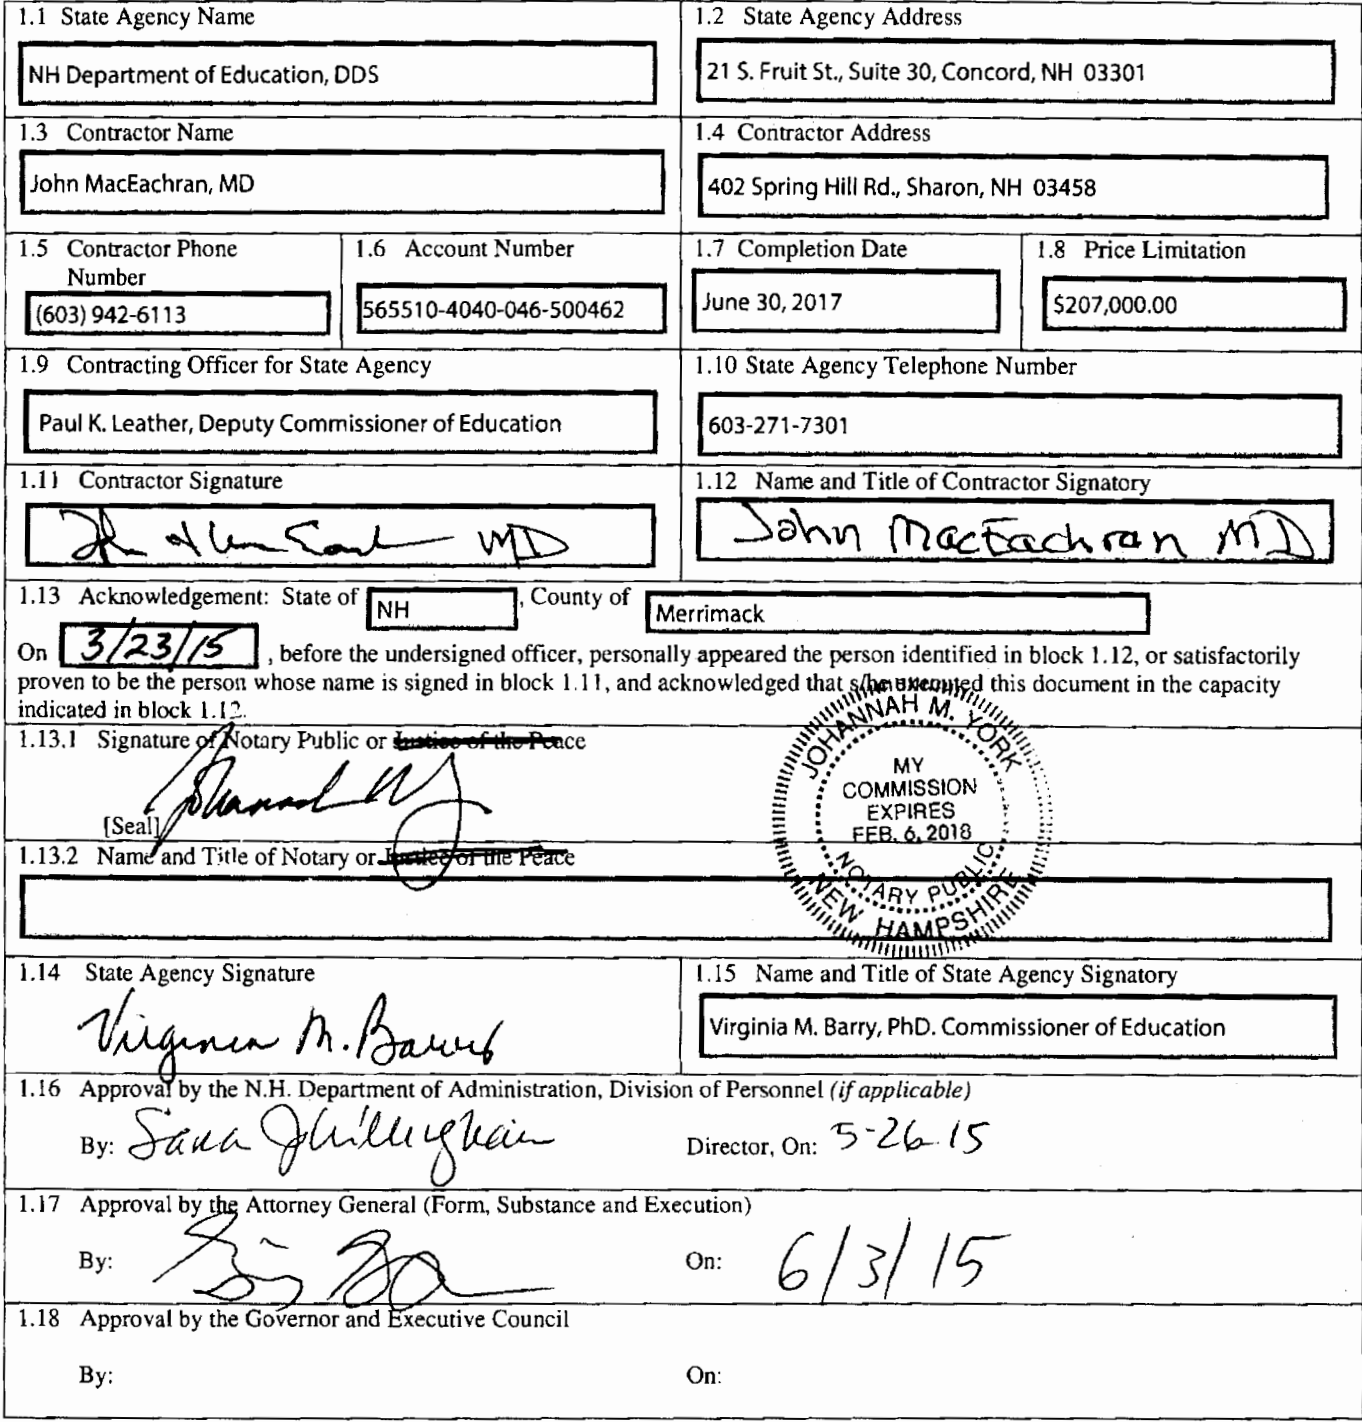 1.1 State Agency Name
NH Department of Education, DDS
1.2 State Agency Address
21 S. Fruit St., Suite 30, Concord, NH 03301
1.3 Contractor Name
John MacEachran, MD
1.4 Contractor Address
402 Spring Hill Rd., Sharon, NH 03458
1.5 Contractor Phone
Number
(603) 942-6113
1.6 Account Number
565510-4040-046-500462
1.7 Completion Date
June 30, 2017
1.8 Price Limitation
$207,000.00
1.9 Contracting Officer for State Agency
Paul K. Leather, Deputy Commissioner of Education
1.10 State Agency Telephone Number
603-271-7301
1.11 Contractor Signature
MD
1.12 Name and Title of Contractor Signatory
John MacEachran MD
1.13 Acknowledgement: State of NH, County of Merrimack
On 3/23/15, before the undersigned officer, personally appeared the person identified in block 1.12, or satisfactorily
proven to be the person whose name is signed in block 1.11, and acknowledged that s/he executed this document in the capacity
indicated in block 1.12.
1.13.1 Signature of Notary Public or Justice of the Peace
[Seal]
JOHANNAH M. YORK
MY
COMMISSION
EXPIRES
FEB. 6, 2018
NOTARY PUBLIC
NEW HAMPSHIRE
1.13.2 Name and Title of Notary or Justice of the Peace
1.14 State Agency Signature
Virginia M. Barry
1.15 Name and Title of State Agency Signatory
Virginia M. Barry, PhD. Commissioner of Education
1.16 Approval by the N.H. Department of Administration, Division of Personnel (if applicable)
By: Sara J Willingham Director, On: 5-26-15
1.17 Approval by the Attorney General (Form, Substance and Execution)
By: On: 6/3/15
1.18 Approval by the Governor and Executive Council
By: On: